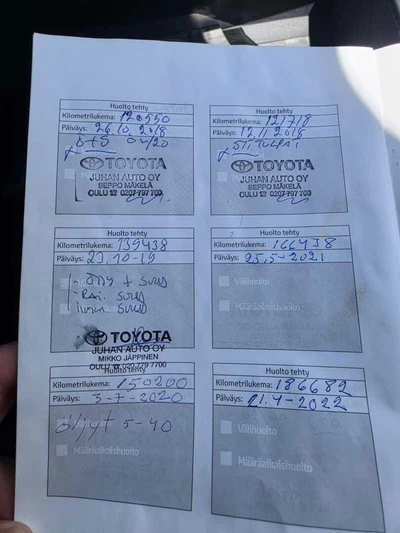 Huolto tehty
Kilometrilukema: 120550
Päiväys: 26.10.2018
TOYOTA
JUHAN AUTO OY
SEPPO MÄKELÄ
OULU ☎ 0207 797 700
Huolto tehty
Kilometrilukema: 121718
Päiväys: 12.11.2018
TOYOTA
JUHAN AUTO OY
SEPPO MÄKELÄ
OULU ☎ 0207 797 700
Huolto tehty
Kilometrilukema: 139438
Päiväys: 23.10-19
TOYOTA
JUHAN AUTO OY
MIKKO JÄPPINEN
Huolto tehty
Kilometrilukema: 166438
Päiväys: 25,5-2021
Välihuolto
Määräaikaishuolto
Huolto tehty
Kilometrilukema: 150200
Päiväys: 3-7-2020
5-40
Määräaikaishuolto
Huolto tehty
Kilometrilukema: 186682
Päiväys: 21.4-2022
Välihuolto
Määräaikaishuolto